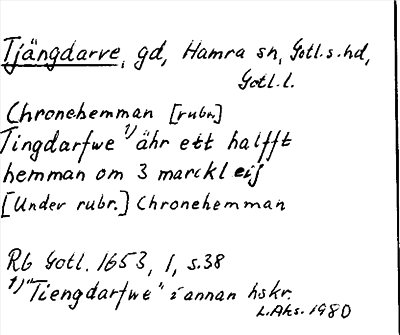 Tjängdarve, gd, Hamra sn, Gotl.s.hd,
Gotl.l.
Chronehemman [rubr.]
Tingdarfwe 1) ähr ett halfft
hemman om 3 marckl eij
[Under rubr.] Chronehemman
Rb Gotl. 1653, 1, s.38
1) "Tiengdarfwe" i annan hskr.
L.Ahs. 1980